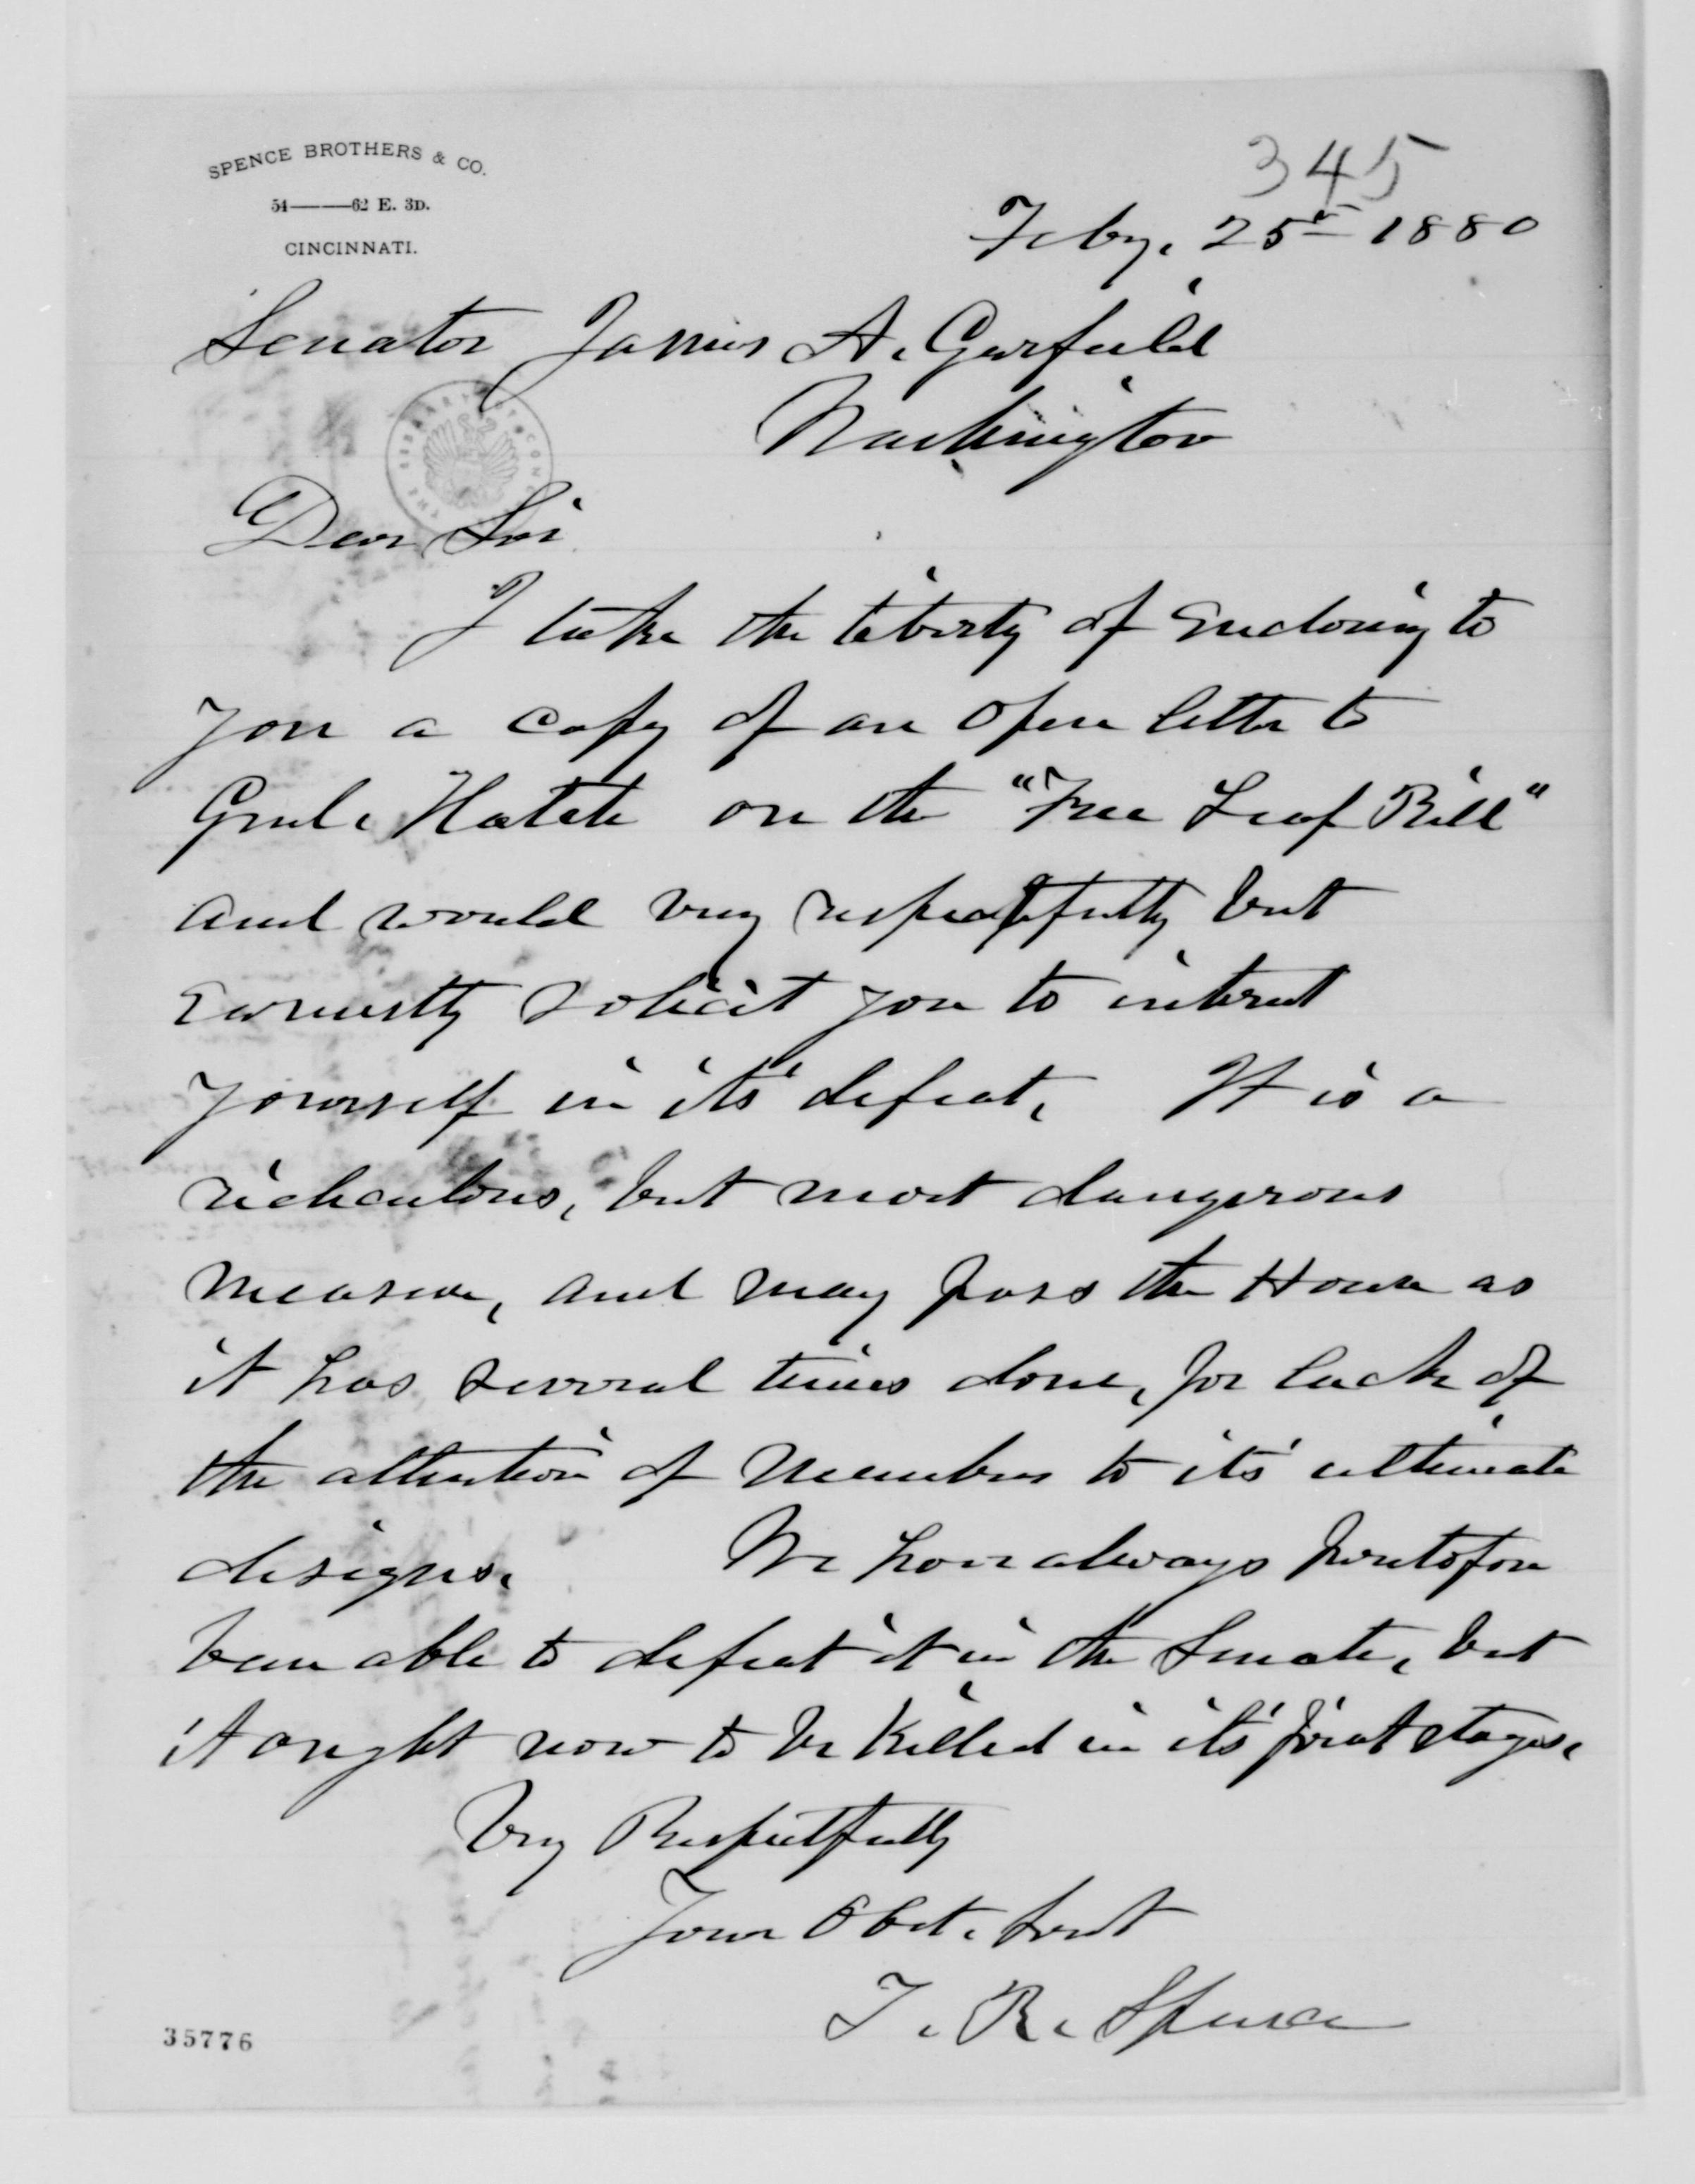 SPENCE BROTHERS & CO.
54———62 E. 3D.
CINCINNATI.
345
Feby. 25th 1880
Senator James A. Garfield
Washington
THE LIBRARY OF CON
Dear Sir
I take the liberty of enclosing to
you a copy of an open letter to
Genl. Hatch on the "Free Leaf Bill"
and would very respectfully but
earnestly solicit you to interest
yourself in its' defeat. It is a
rediculous, but most dangerous
measure, and may pass the House as
it has several times done, for lack of
the attention of Members to its' ultimate
designs. We have always heretofore
been able to defeat it in the Senate, but
it ought now to be Killed in its' first stages.
Very Respectfully
Your Obt. Servt
T. R. Spence
35776